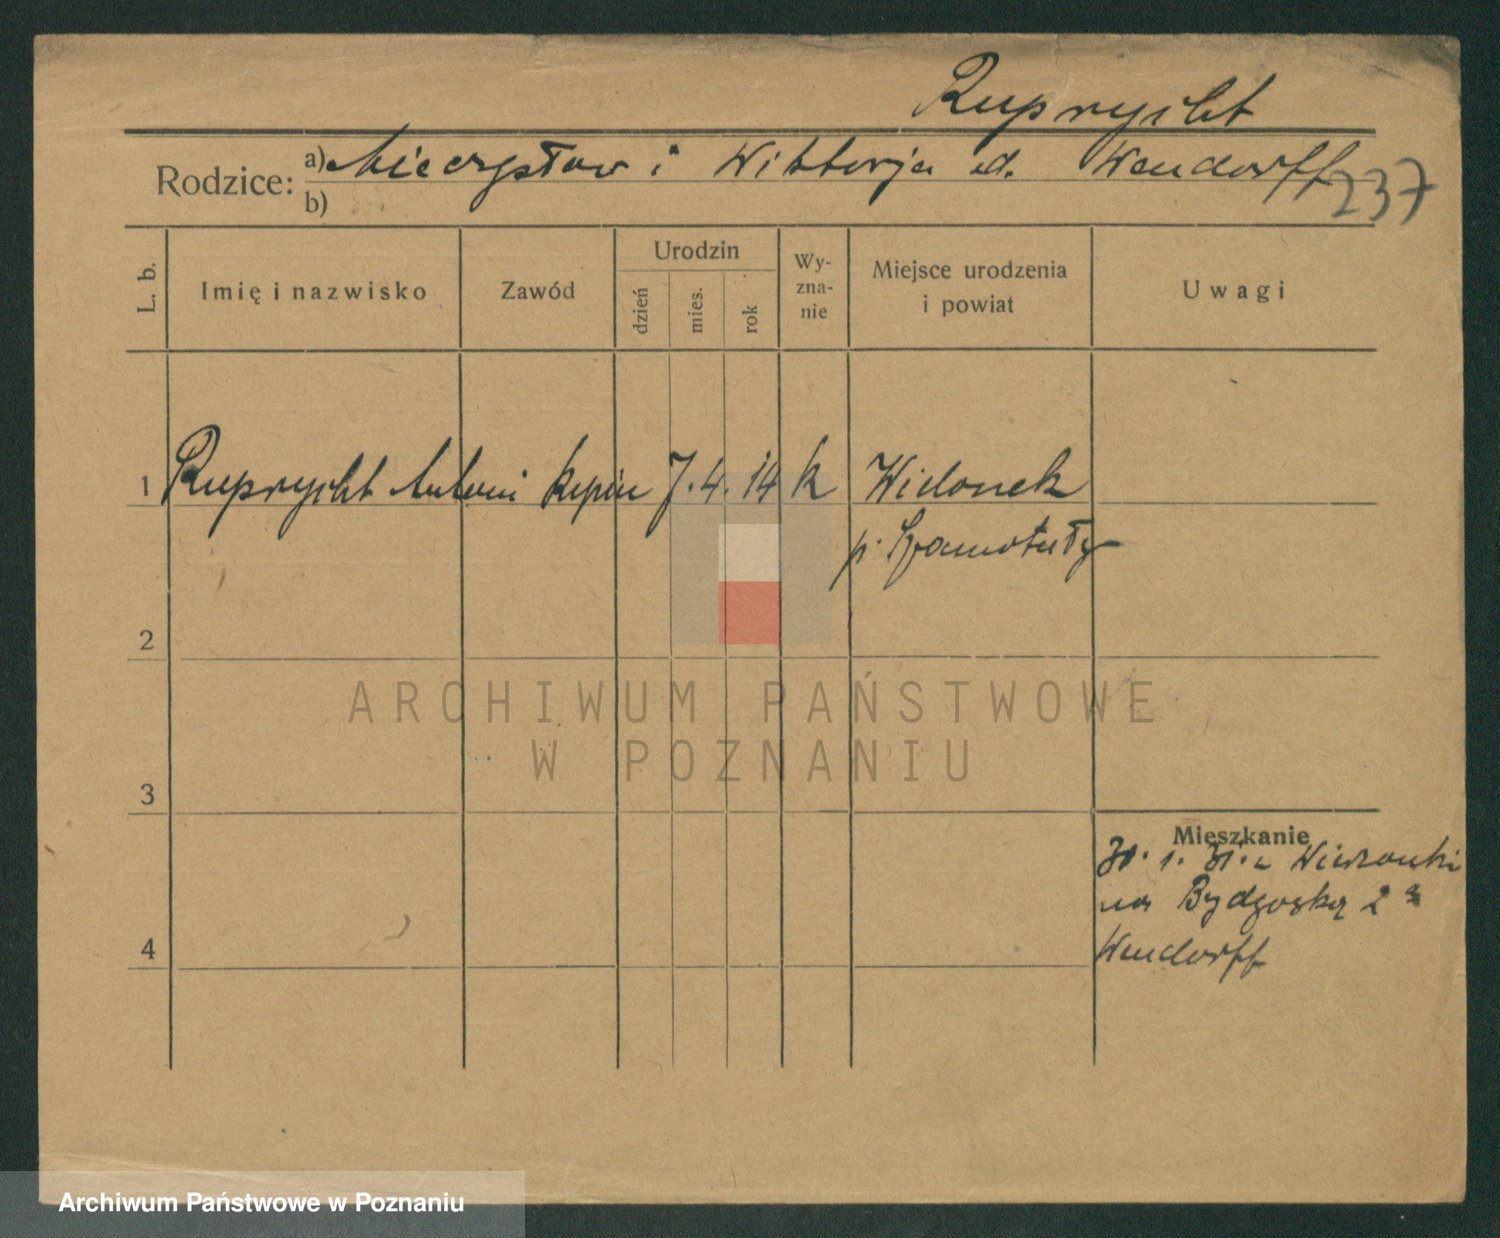 Ruprycht
Rodzice: a) Mieczysław i Wiktorja d. Wendorff
b)
237
L. b.
Imię i nazwisko
Zawód
Urodzin
dzień
mies.
rok
Wy-
zna-
nie
Miejsce urodzenia
i powiat
Uwagi
1 Ruprycht Antoni kupiec 7. 4. 14 k Wielonek
p. Szamotuły
2
3
4
Mieszkanie
31. 1. 31. z Wieżonki
na Bydgoską 2
Wendorff
ARCHIWUM PAŃSTWOWE
W POZNANIU
Archiwum Państwowe w Poznaniu